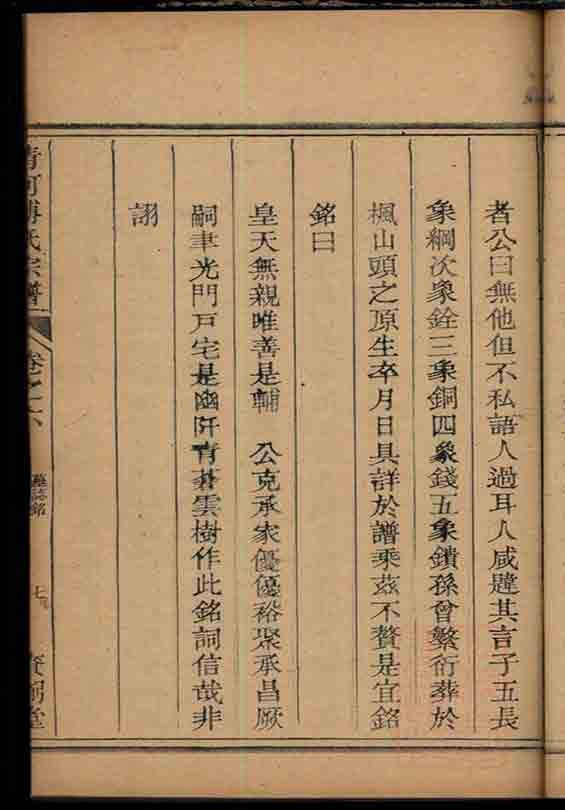 者公曰無他但不私語人過耳人咸韙其言子五長
象綱次象銓三象銅四象錢五象鐼孫曾繁衍葬於
楓山頭之原生卒月日具詳於譜乘茲不贅是宜銘
銘曰
皇天無親唯善是輔　公克承家優優裕聚承昌厥
嗣聿光門戶宅是幽阡青蒼雲樹作此銘詞信哉非
詡
清河傅氏宗譜
卷之六
墓誌銘
七
堂